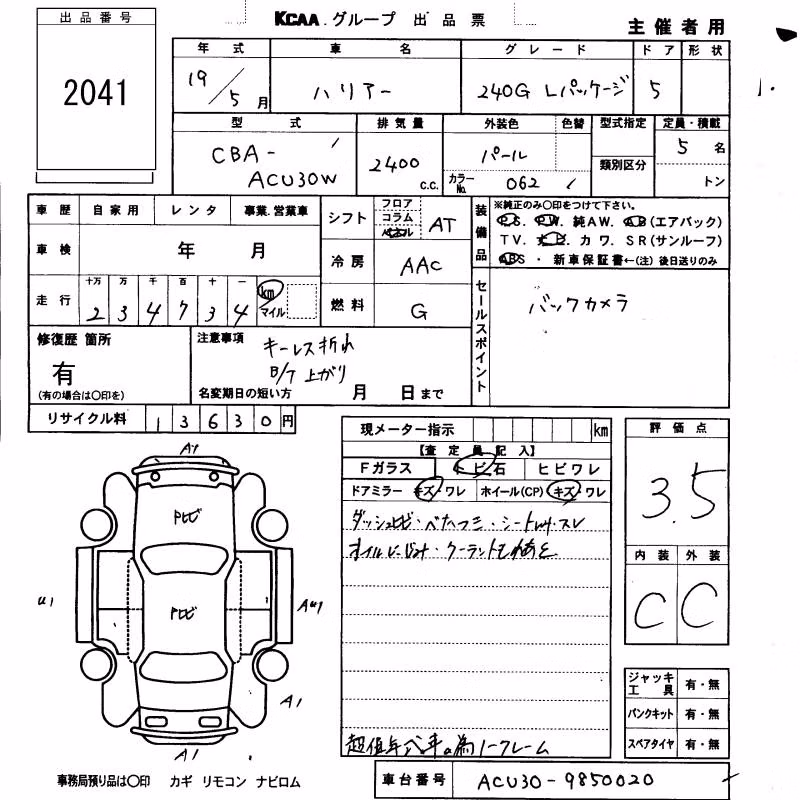 KCAA グループ 出品票
主催者用
出品番号
2041
年式 車名 グレード ドア 形状
19/5月 ハリアー 240G Lパッケージ 5
型式 排気量 外装色 色替 型式指定 定員・積載
CBA-ACU30W 2400 c.c. パール 類別区分 5名
カラーNo. 062 トン
車歴 自家用 レンタ 事業.営業車
車検 年 月
走行 十万 万 千 百 十 一
2 3 4 7 3 4 km マイル
シフト フロア コラム AT
冷房 AAC
燃料 G
装備品
※純正のみ○印をつけて下さい。
P.S. P.W. 純AW. AB(エアバッグ)
TV. ナビ. カワ. SR(サンルーフ)
ABS ・ 新車保証書←(注)後日送りのみ
セールスポイント
バックカメラ
修復歴 箇所
有
(有の場合は○印を)
注意事項
キーレス折れ
B/T 上がり
名変期日の短い方 月 日まで
リサイクル料 13630円
現メーター指示 km
【査定員記入】
Fガラス トビ石 ヒビワレ
ドアミラー キズ・ワレ ホイール(CP) キズ・ワレ
オイルにじみ・クーラントもれあと
超低年式車の為ノークレーム
評価点
3.5
内装 外装
C C
ジャッキ工具 有・無
パンクキット 有・無
スペアタイヤ 有・無
A1
U1
A1
A1
事務局預り品は○印 カギ リモコン ナビロム
車台番号 ACU30-9850020